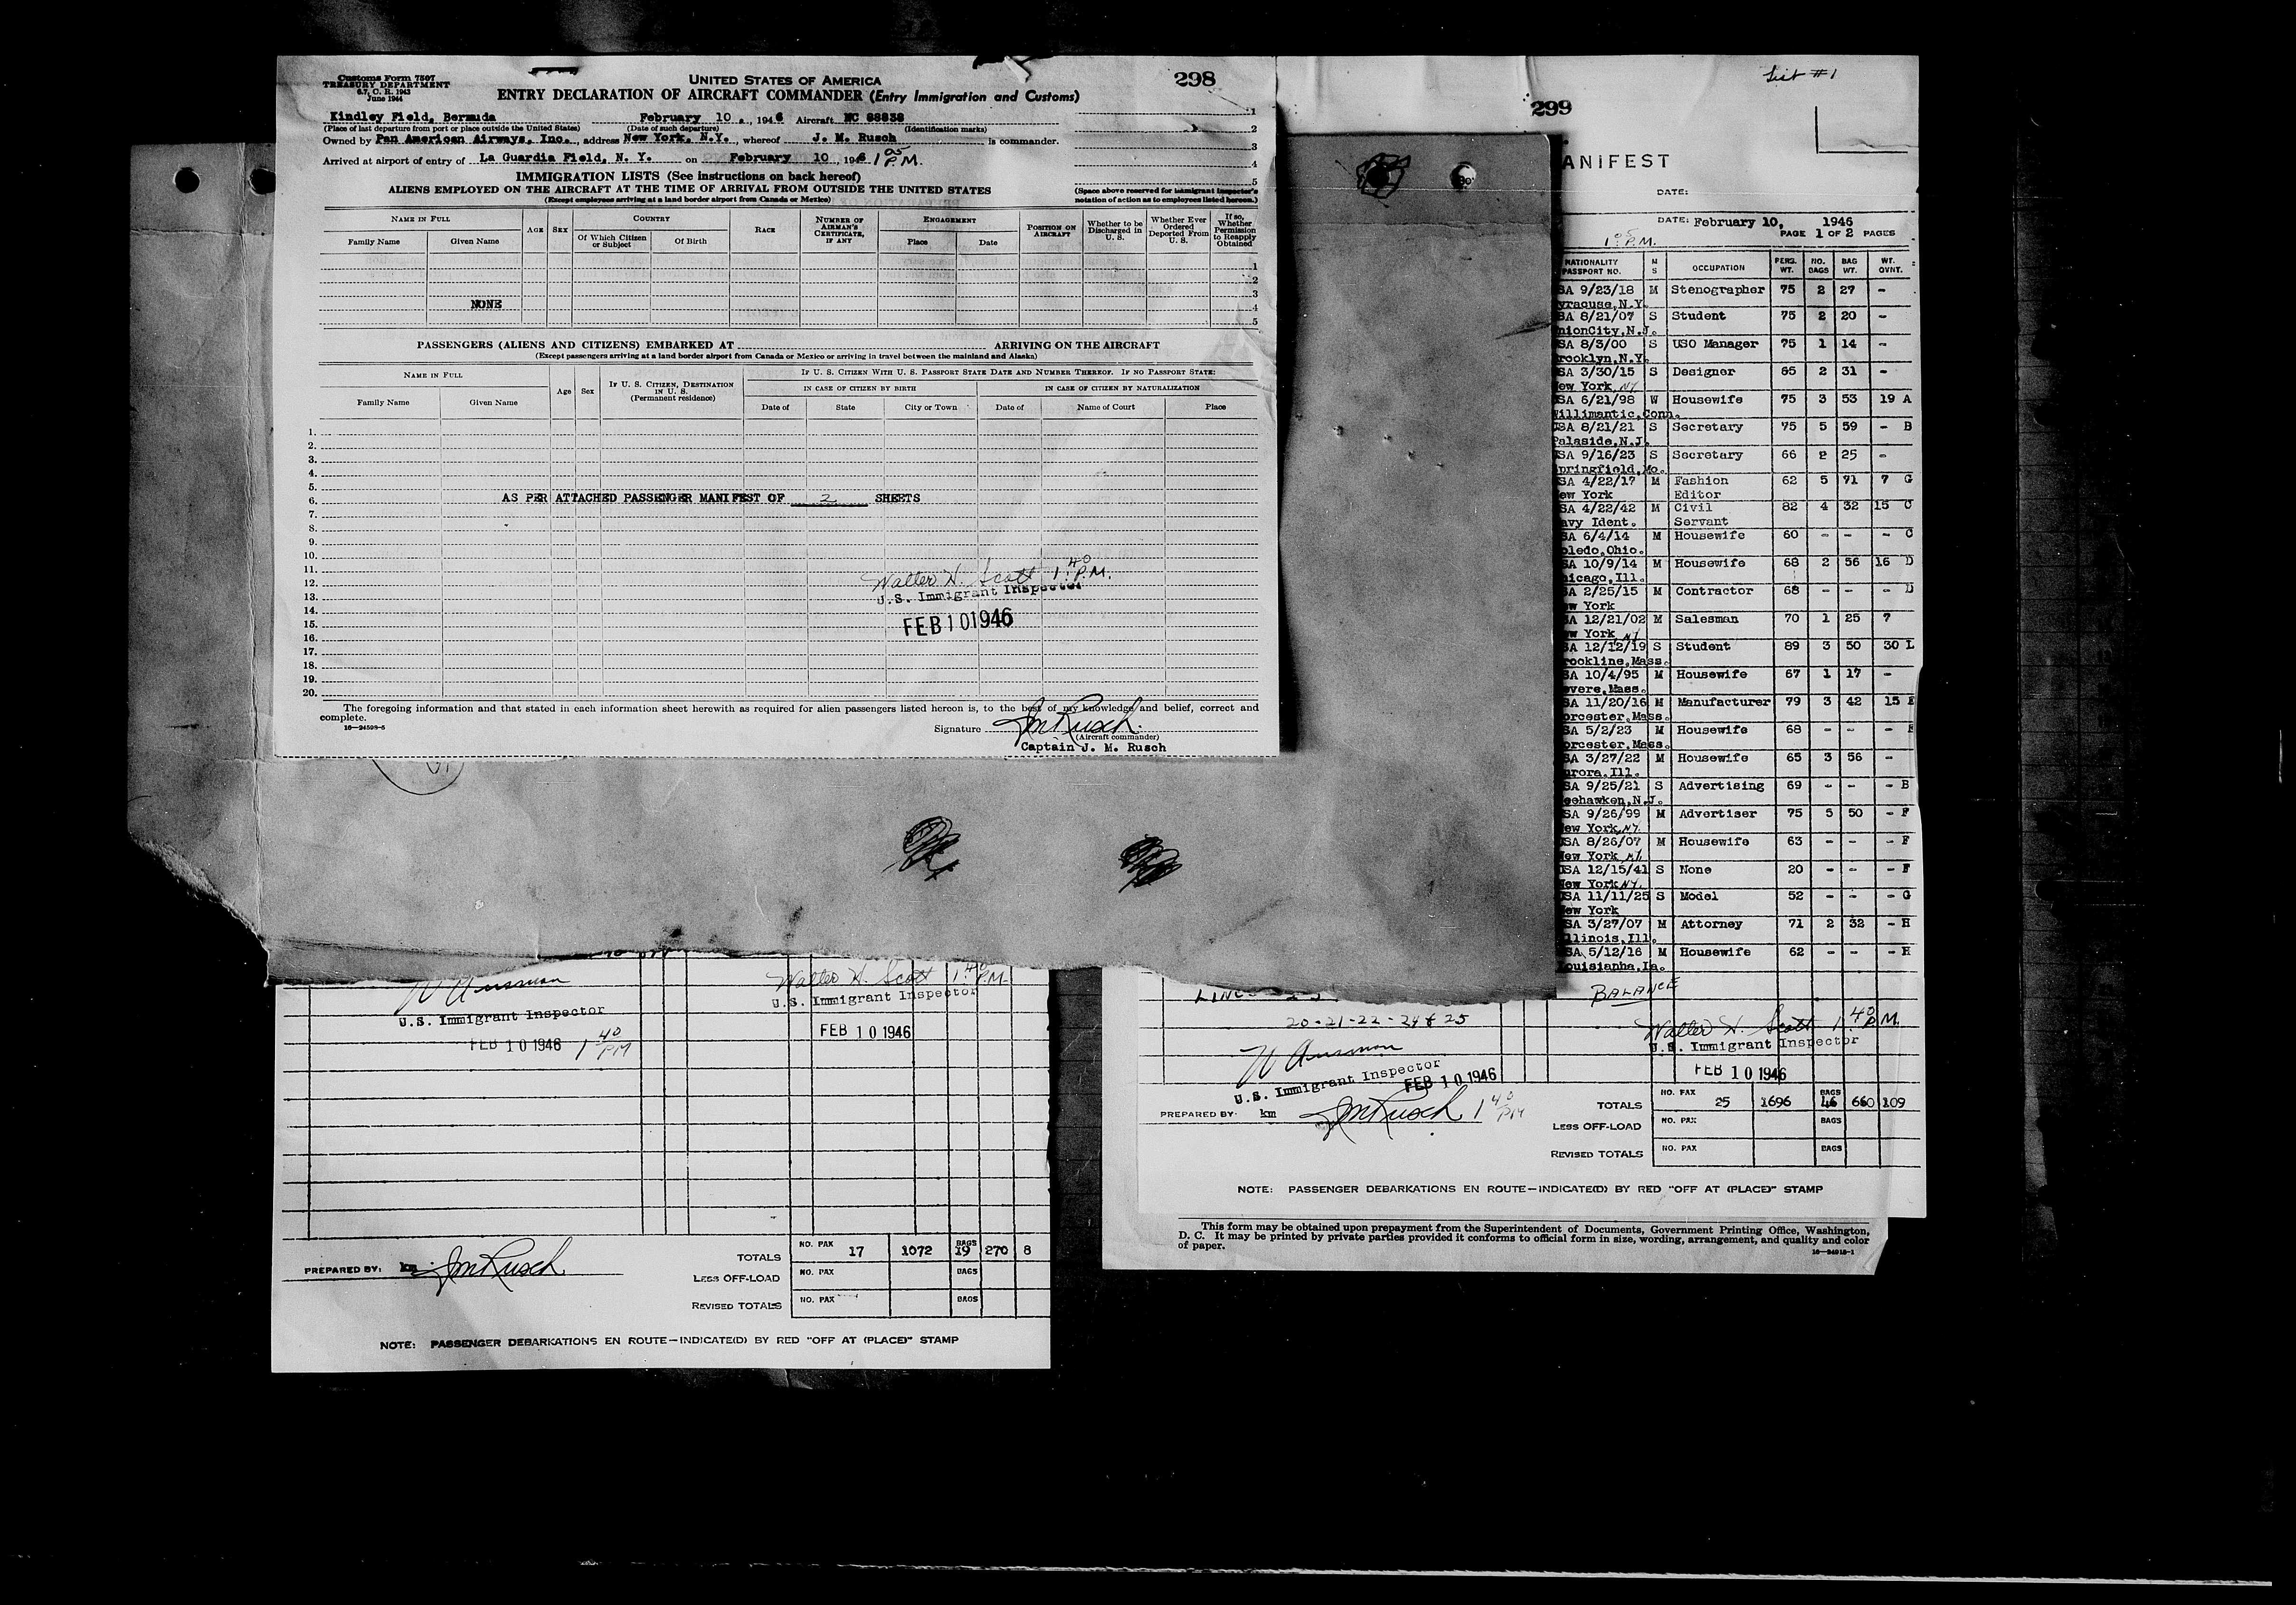 Customs Form 7507
TREASURY DEPARTMENT
6.7, C. R. 1943
June 1944
UNITED STATES OF AMERICA
298
ENTRY DECLARATION OF AIRCRAFT COMMANDER (Entry Immigration and Customs)
Kindley Field, Bermuda February 10, 1946 Aircraft NC 88838
(Place of last departure from port or place outside the United States) (Date of such departure) (Identification marks)
Owned by Pan American Airways, Inc., address New York, N.Y., whereof J. M. Rusch is commander.
Arrived at airport of entry of La Guardia Field, N. Y. on February 10, 1946 1 05 P.M.
1
2
3
4
5
IMMIGRATION LISTS (See instructions on back hereof)
ALIENS EMPLOYED ON THE AIRCRAFT AT THE TIME OF ARRIVAL FROM OUTSIDE THE UNITED STATES
(Except employees arriving at a land border airport from Canada or Mexico)
(Space above reserved for immigrant inspector's
notation of action as to employees listed hereon.)
NAME IN FULL
Family Name Given Name
AGE SEX
COUNTRY
Of Which Citizen or Subject
Of Birth
RACE
NUMBER OF AIRMAN'S CERTIFICATE, IF ANY
ENGAGEMENT
Place Date
POSITION ON AIRCRAFT
Whether to be Discharged in U. S.
Whether Ever Ordered Deported From U. S.
If so, Whether Permission to Reapply Obtained
1
2
3
NONE
4
5
PASSENGERS (ALIENS AND CITIZENS) EMBARKED AT ARRIVING ON THE AIRCRAFT
(Except passengers arriving at a land border airport from Canada or Mexico or arriving in travel between the mainland and Alaska)
NAME IN FULL
Family Name Given Name
Age Sex
IF U. S. CITIZEN, DESTINATION IN U. S.
(Permanent residence)
IF U. S. CITIZEN WITH U. S. PASSPORT STATE DATE AND NUMBER THEREOF. IF NO PASSPORT STATE:
IN CASE OF CITIZEN BY BIRTH IN CASE OF CITIZEN BY NATURALIZATION
Date of State City or Town Date of Name of Court Place
1.
2.
3.
4.
5.
6. AS PER ATTACHED PASSENGER MANIFEST OF 2 SHEETS
7.
8.
9.
10.
11.
12.
13.
14.
15.
16.
17.
18.
19.
20.
Walter H. Scott 1 40 P.M.
U.S. Immigrant Inspector
FEB 10 1946
The foregoing information and that stated in each information sheet herewith as required for alien passengers listed hereon is, to the best of my knowledge and belief, correct and
complete.
16—24598-5
Signature JM Rusch
(Aircraft commander)
Captain J. M. Rusch
List #1
299
ANIFEST
DATE:
DATE: February 10, 1946
1 05 P.M.
PAGE 1 OF 2 PAGES
NATIONALITY PASSPORT NO.
M S
OCCUPATION
PERS. WT.
NO. BAGS
BAG WT.
WT. OVNT.
SA 9/23/18 M Stenographer 75 2 27 -
yracuse, N.Y.
SA 8/21/07 S Student 75 2 20 -
nionCity, N.J.
SA 8/3/00 S USO Manager 75 1 14 -
rooklyn, N.Y.
SA 3/30/15 S Designer 65 2 31 -
ew York, NY
SA 6/21/98 W Housewife 75 3 53 19 A
Willimantic, Conn.
USA 8/21/21 S Secretary 75 5 59 - B
Palaside, N.J.
SA 9/16/23 S Secretary 66 2 25 -
pringfield, Mo.
SA 4/22/17 M Fashion 62 5 71 7 G
ew York Editor
SA 4/22/42 M Civil 82 4 32 15 C
avy Ident. Servant
SA 6/4/14 M Housewife 60 - - - C
oledo, Ohio.
SA 10/9/14 M Housewife 68 2 56 16 D
hicago, Ill.
SA 2/25/15 M Contractor 68 - - - D
ew York
SA 12/21/02 M Salesman 70 1 25 7
ew York, NY
SA 12/12/19 S Student 89 3 50 30 L
rookline, Mass.
SA 10/4/95 M Housewife 67 1 17 -
evere, Mass.
SA 11/20/16 M Manufacturer 79 3 42 15 E
orcester, Mass.
SA 5/2/23 M Housewife 68 - - - E
orcester, Mass.
SA 3/27/22 M Housewife 65 3 56 -
urora, Ill.
SA 9/25/21 S Advertising 69 - - - B
eehawken, N.J.
SA 9/26/99 M Advertiser 75 5 50 - F
ew York, NY.
SA 8/26/07 M Housewife 63 - - - F
New York NY.
USA 12/15/41 S None 20 - - - F
New York NY.
USA 11/11/25 S Model 52 - - - G
New York
SA 3/27/07 M Attorney 71 2 32 - H
llinois, Ill.
SA 5/12/16 M Housewife 62 - - - H
Louisianha, La.
BALANCE
20-21-22-24 & 25
Walter H. Scott 1 40 P.M.
U.S. Immigrant Inspector
FEB 10 1946
U.S. Immigrant Inspector
FEB 10 1946
PREPARED BY: km JM Rusch 1 40 PM
TOTALS NO. PAX 25 1696 BAGS 46 660 109
LESS OFF-LOAD NO. PAX BAGS
REVISED TOTALS NO. PAX BAGS
NOTE: PASSENGER DEBARKATIONS EN ROUTE—INDICATE(D) BY RED "OFF AT (PLACE)" STAMP
This form may be obtained upon prepayment from the Superintendent of Documents, Government Printing Office, Washington,
D. C. It may be printed by private parties provided it conforms to official form in size, wording, arrangement, and quality and color
of paper.
U.S. Immigrant Inspector
FEB 10 1946 1 40 PM
Walter H. Scott 1 40 P.M.
U.S. Immigrant Inspector
FEB 10 1946
PREPARED BY: km JM Rusch
TOTALS NO. PAX 17 1072 BAGS 19 270 8
LESS OFF-LOAD NO. PAX BAGS
REVISED TOTALS NO. PAX BAGS
NOTE: PASSENGER DEBARKATIONS EN ROUTE—INDICATE(D) BY RED "OFF AT (PLACE)" STAMP